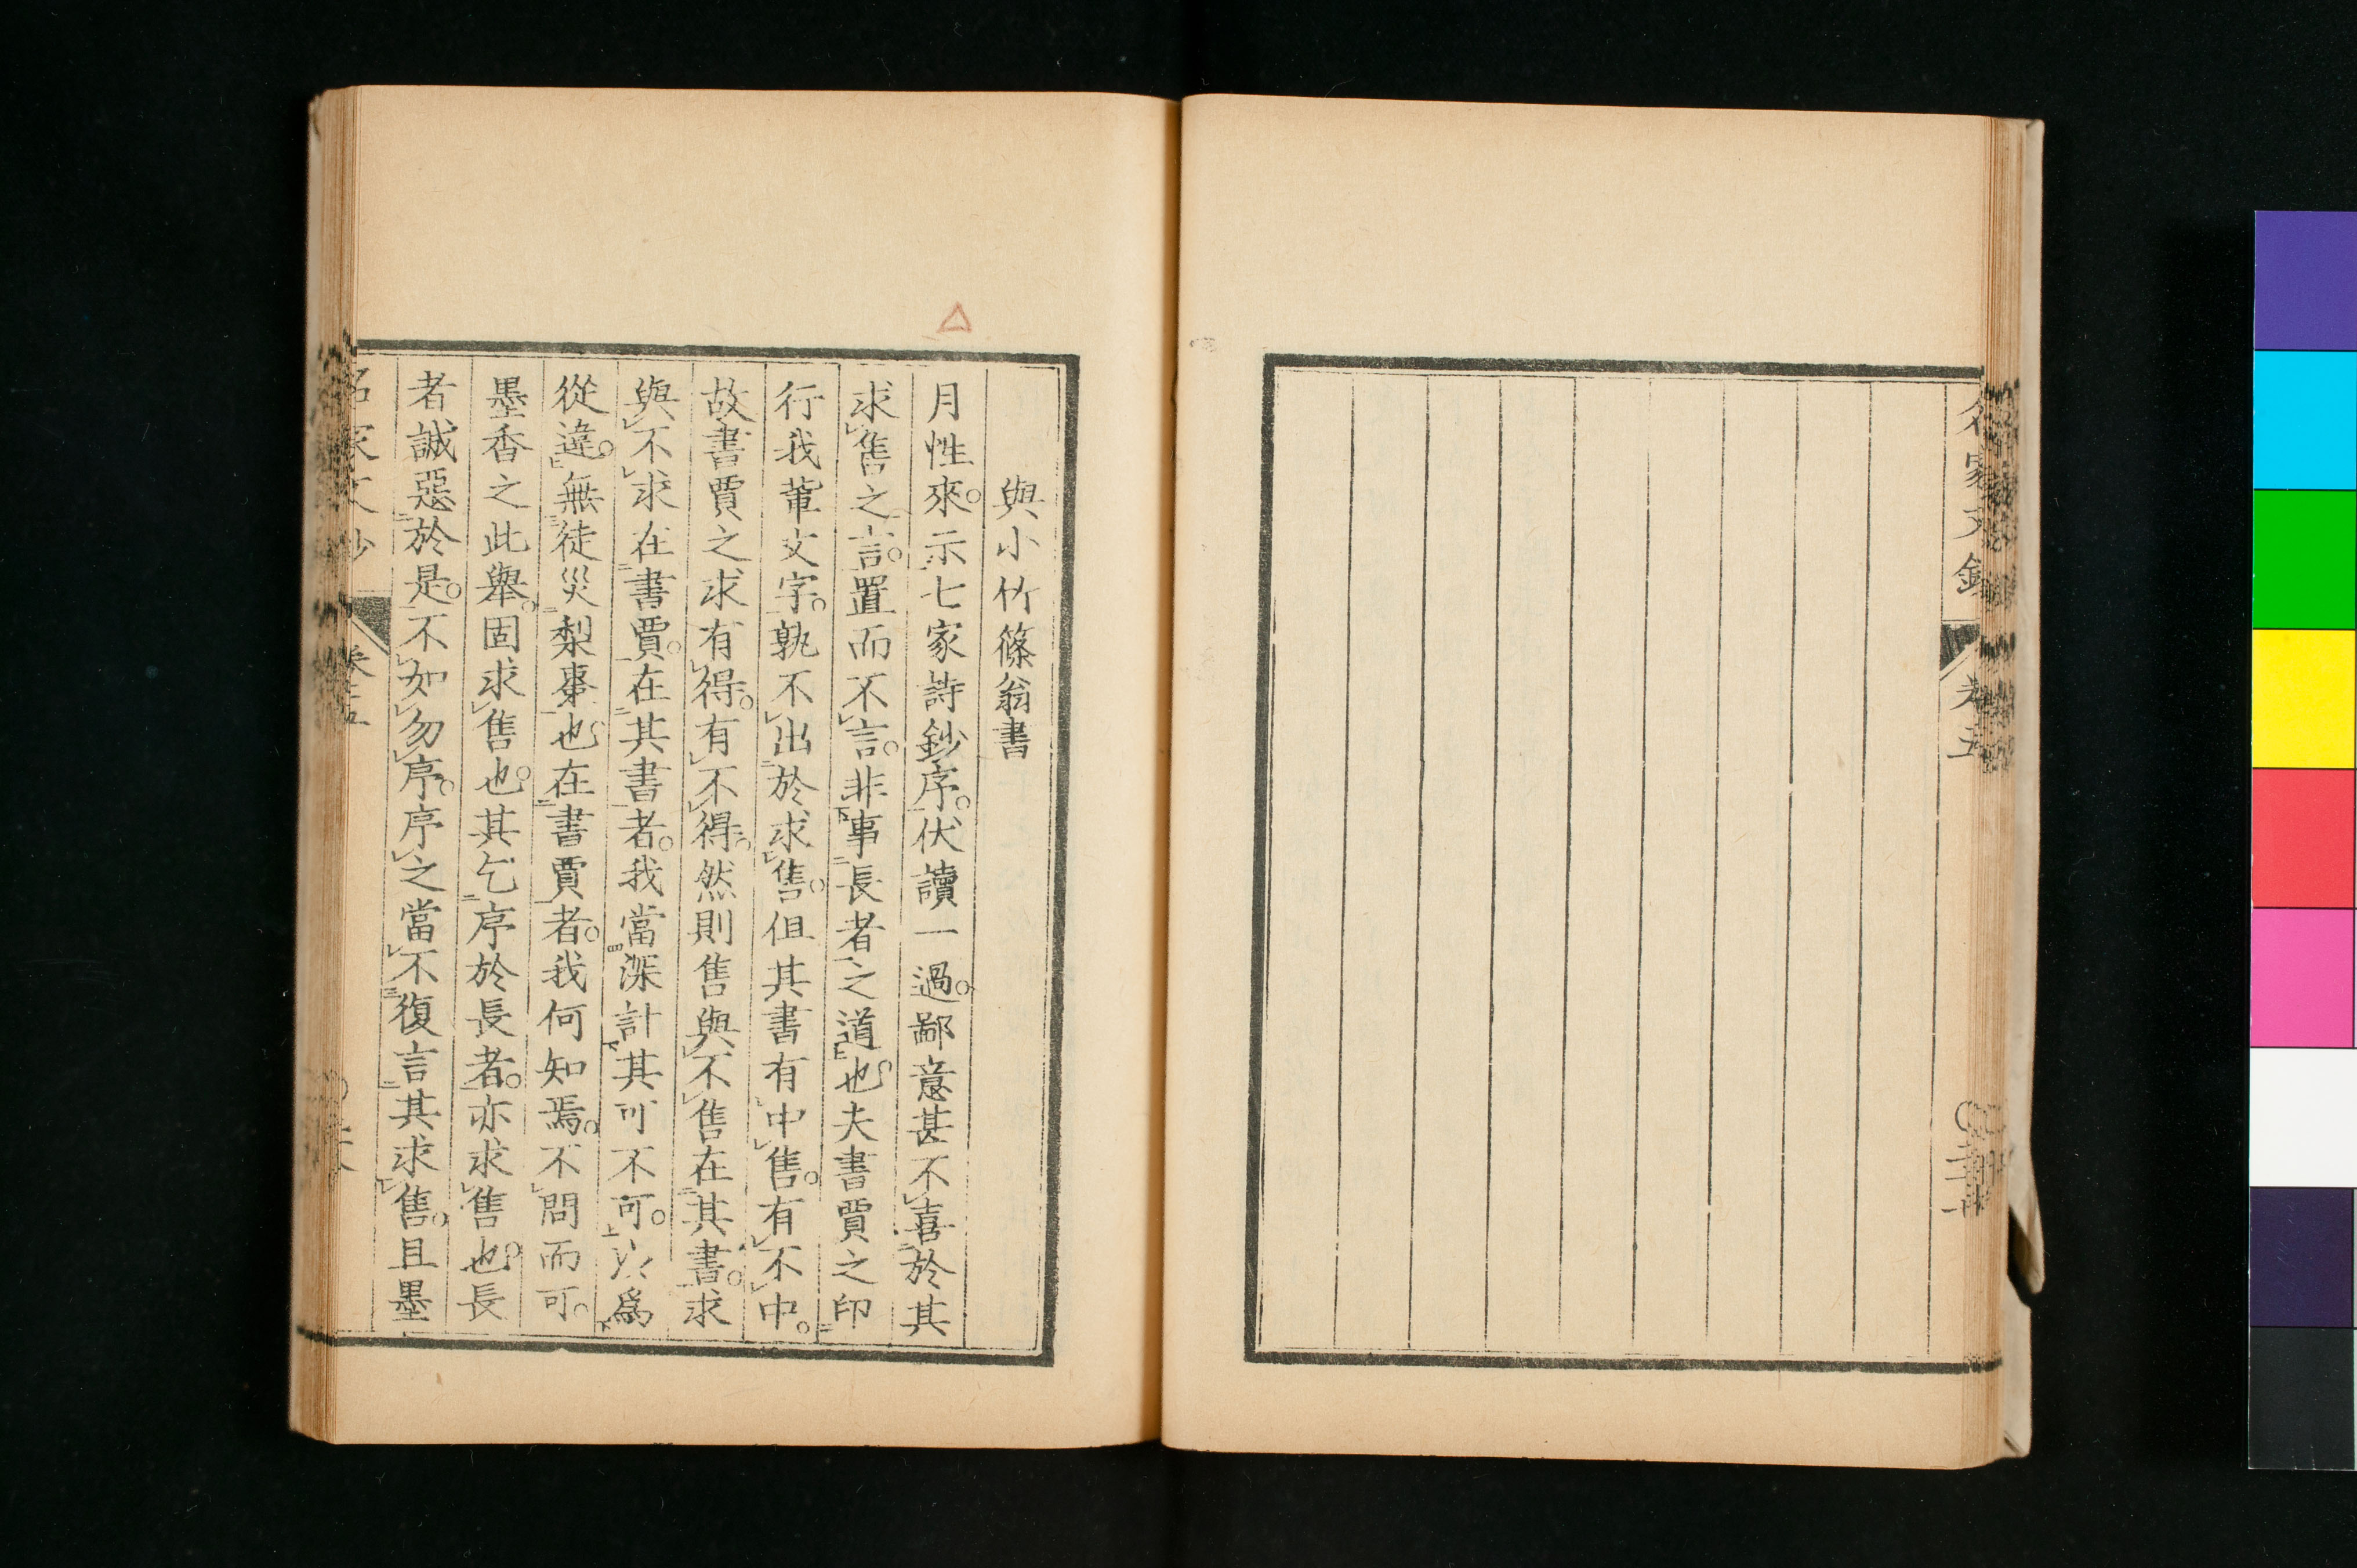 名家文鈔
卷五
與小竹篠翁書
月性來。示七家詩鈔序。伏讀一過。鄙意甚不喜於其
求售之言。置而不言。非事長者之道也。夫書賈之印
行我輩文字。孰不出於求售。但其書有中售。有不中。
故書賈之求有得。有不得。然則售與不售在其書。求
與不求在書賈。在其書者。我當深計其可不可。以爲
從違。無徒災梨棗也。在書賈者。我何知焉。不問而可。
墨香之此舉。固求售也。其乞序於長者。亦求售也。長
者誠惡於是。不如勿序。序之當不復言其求售。且墨
名家文鈔
卷五